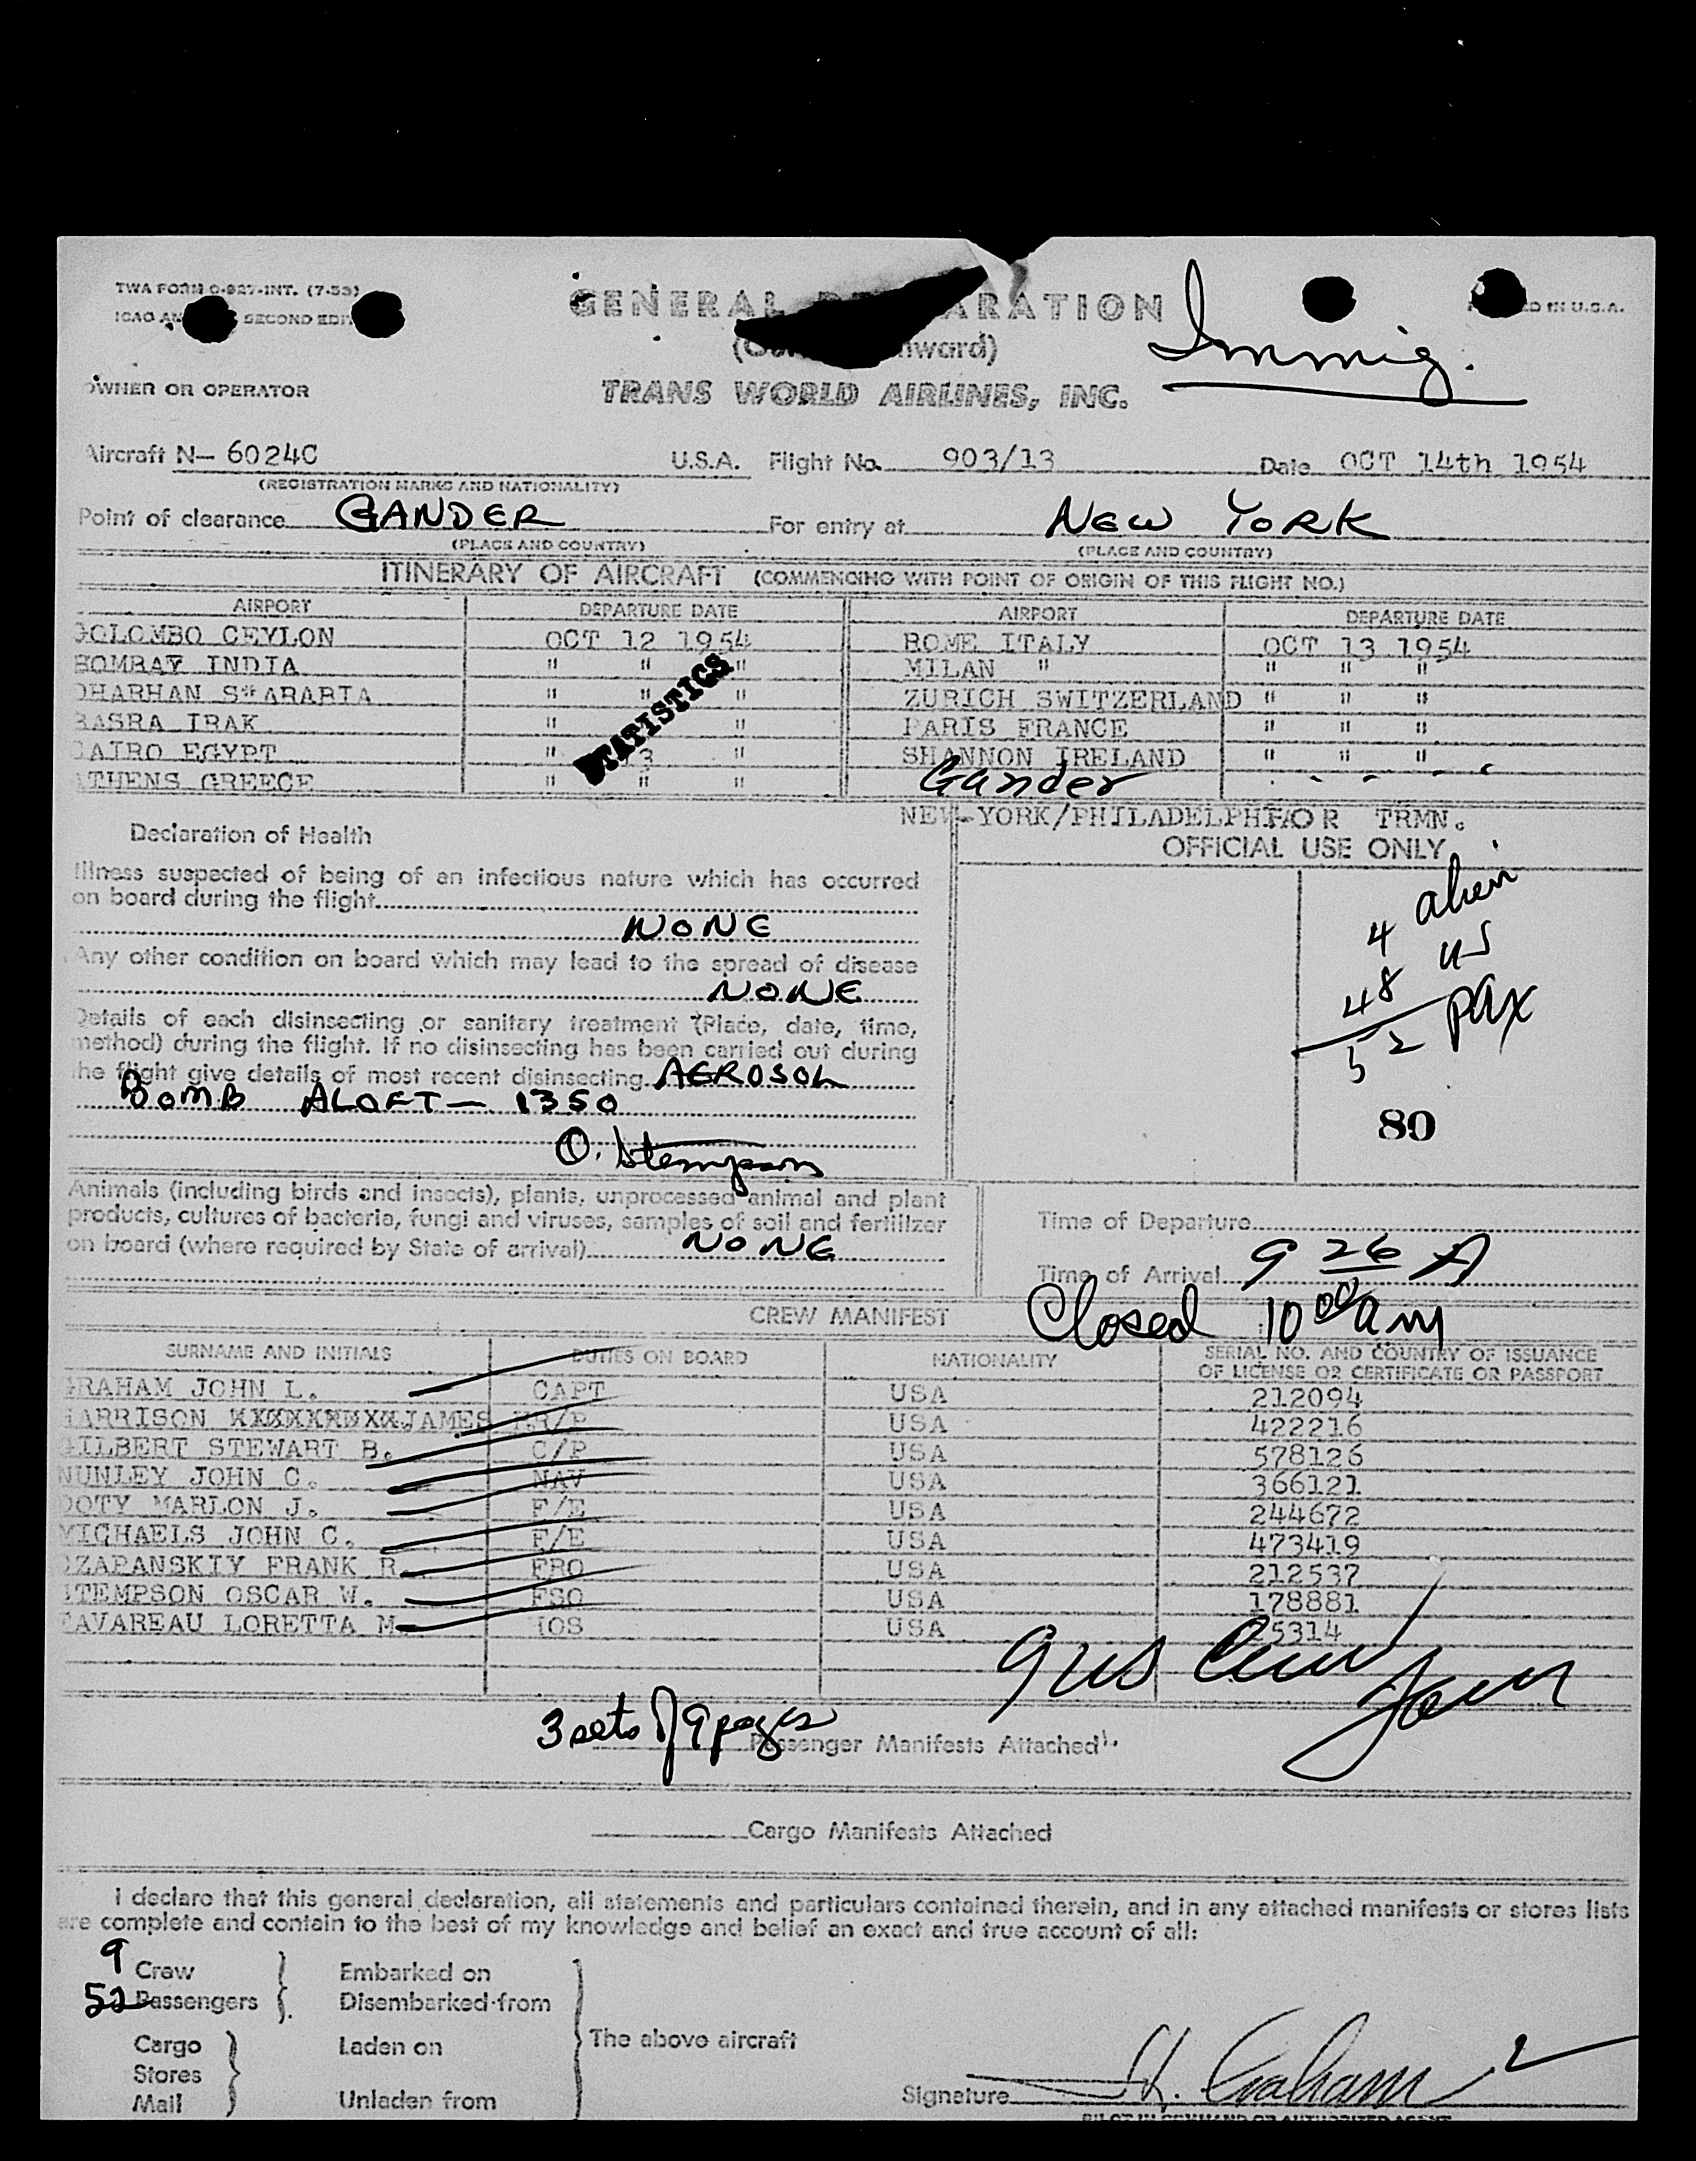 TWA FORM O-927-INT. (7-53)
SECOND
GENERAL ARATION
nward)
Immig.
IN U.S.A.
OWNER OR OPERATOR
TRANS WORLD AIRLINES, INC.
Aircraft N- 6024C U.S.A. Flight No. 903/13 Date OCT 14th 1954
(REGISTRATION MARKS AND NATIONALITY)
Point of clearance GANDER For entry at NEW YORK
(PLACE AND COUNTRY) (PLACE AND COUNTRY)
ITINERARY OF AIRCRAFT (COMMENCING WITH POINT OF ORIGIN OF THIS FLIGHT NO.)
AIRPORT DEPARTURE DATE AIRPORT DEPARTURE DATE
COLOMBO CEYLON OCT 12 1954 ROME ITALY OCT 13 1954
BOMBAY INDIA " " " MILAN " " " "
DHARHAN S" ARABIA " " " ZURICH SWITZERLAND " " "
BASRA IRAK " " PARIS FRANCE " " "
CAIRO EGYPT " 3 " SHANNON IRELAND " " "
ATHENS GREECE " " " Gander
STATISTICS
NEW YORK/PHILADELPHIA OR TRMN.
Declaration of Health
OFFICIAL USE ONLY
Illness suspected of being of an infectious nature which has occurred
on board during the flight
NONE
Any other condition on board which may lead to the spread of disease
NONE
Details of each disinsecting or sanitary treatment (Place, date, time,
method) during the flight. If no disinsecting has been carried out during
the flight give details of most recent disinsecting AEROSOL
BOMB ALOFT- 1350
O. Stempson
4 alien
48 US
52 pax
80
Animals (including birds and insects), plants, unprocessed animal and plant
products, cultures of bacteria, fungi and viruses, samples of soil and fertilizer
on board (where required by State of arrival) NONE
Time of Departure
Time of Arrival 9 26 A
Closed 10 00 am
CREW MANIFEST
SURNAME AND INITIALS DUTIES ON BOARD NATIONALITY SERIAL NO. AND COUNTRY OF ISSUANCE
OF LICENSE OR CERTIFICATE OR PASSPORT
GRAHAM JOHN L. CAPT USA 212094
HARRISON JAMES USA 422216
GILBERT STEWART B. C/P USA 578126
NUNLEY JOHN C. NAV USA 366121
DOTY MARLON J. F/E USA 244672
MICHAELS JOHN C. F/E USA 473419
CZAPANSKIY FRANK R. FRO USA 212537
STEMPSON OSCAR W. FSO USA 178881
TAVAREAU LORETTA M. HOS USA 25314
9 US
3 sets of 9 pages Passenger Manifests Attached
Cargo Manifests Attached
I declare that this general declaration, all statements and particulars contained therein, and in any attached manifests or stores lists
are complete and contain to the best of my knowledge and belief an exact and true account of all:
9 Crew Embarked on
52 Passengers Disembarked from
The above aircraft
Cargo Laden on
Stores
Mail Unladen from
Signature J.L. Graham
PILOT IN COMMAND OR AUTHORIZED AGENT